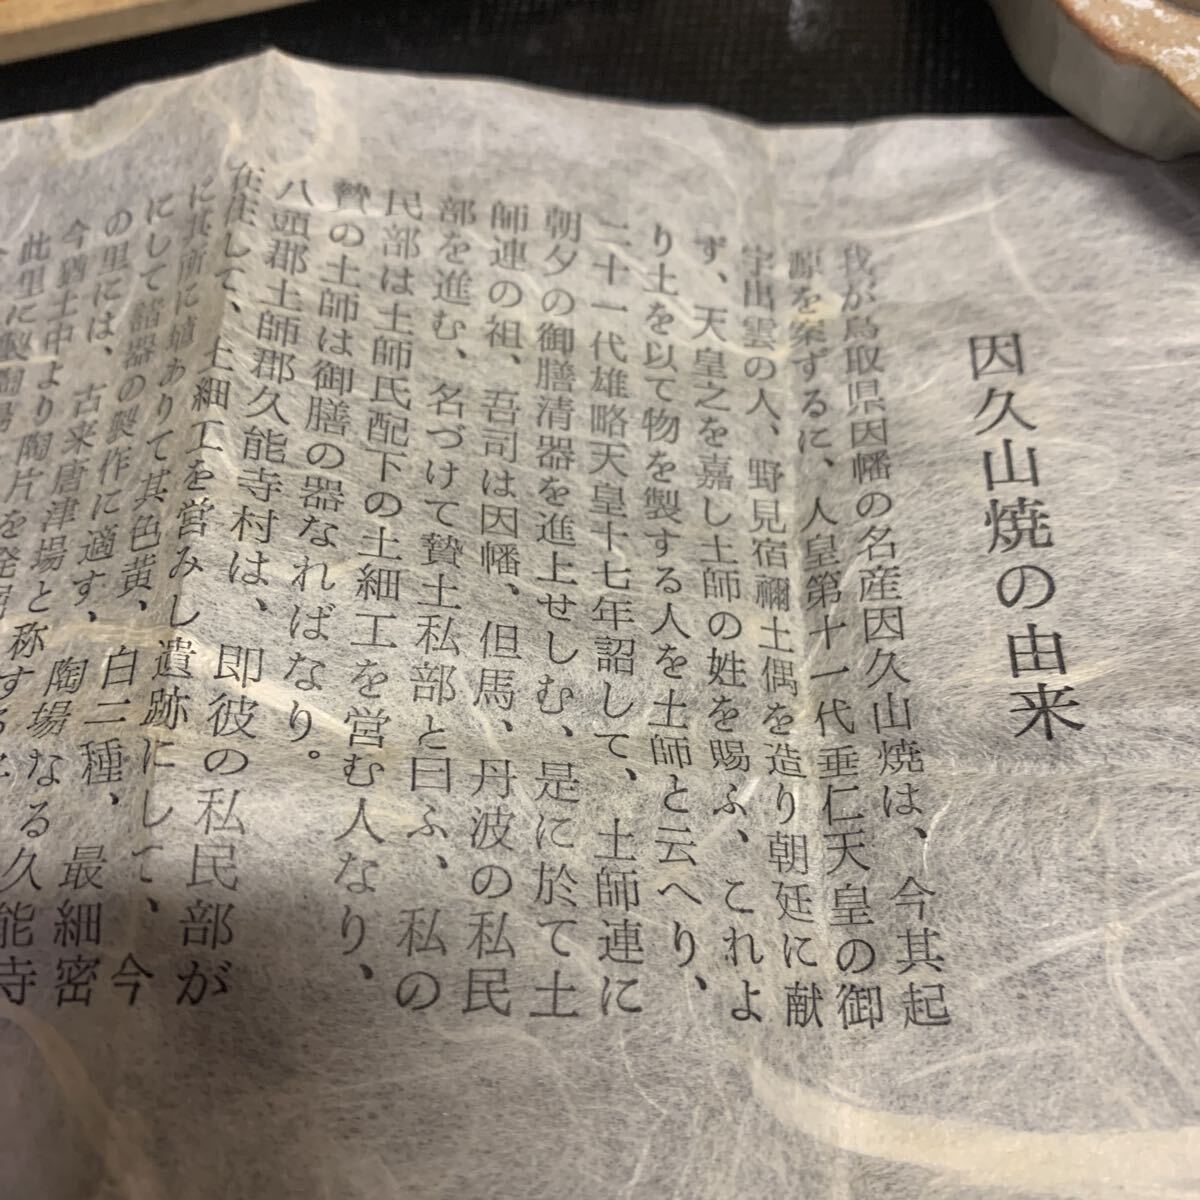 因久山焼の由来
我が鳥取県因幡の名産因久山焼は、今其起
源を案ずるに、人皇第十一代垂仁天皇の御
宇出雲の人、野見宿禰土偶を造り朝廷に献
ず、天皇之を嘉し土師の姓を賜ふ、これよ
り土を以て物を製する人を土師と云へり、
二十一代雄略天皇十七年詔して、土師連に
朝夕の御膳清器を進上せしむ、是に於て土
師連の祖、吾司は因幡、但馬、丹波の私民
部を進む、名づけて贄土私部と曰ふ、私の
民部は土師氏配下の土細工を営む人なり、
贄の土師は御膳の器なればなり。
八頭郡土師郡久能寺村は、即彼の私民部が
在住して、土細工を営みし遺跡にして、今
に其所に墟ありて其色黄、白二種、最細密
にして諸器の製作に適す、陶場なる久能寺
の里には、古来唐津場と称する
今猶土中より陶片を発掘
此里に製陶場